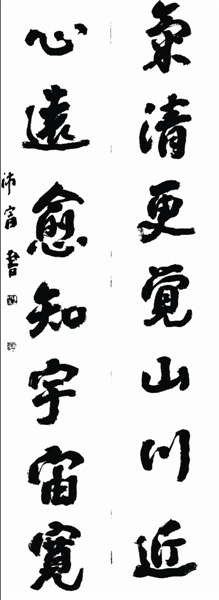 氣清更覺山川近
心遠愈知宇宙寬
沛 書